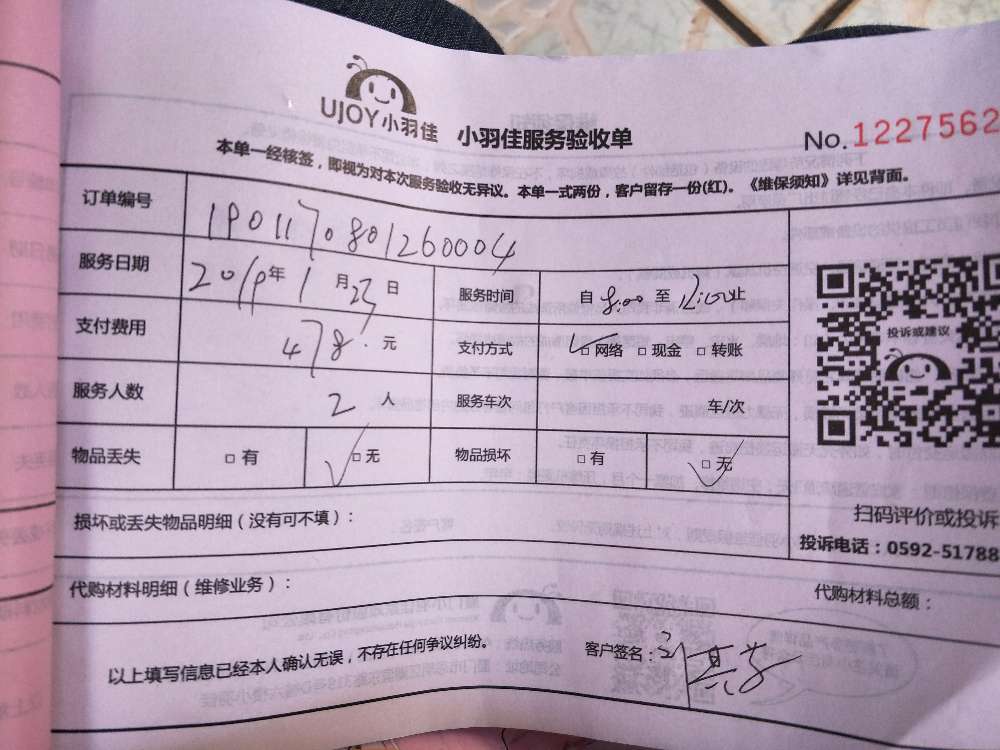 UJOY小羽佳
小羽佳服务验收单
No.1227562
本单一经核签，即视为对本次服务验收无异议。本单一式两份，客户留存一份(红)。《维保须知》详见背面。
订单编号 1901170801260004
服务日期 2019年1月23日 服务时间 自8:00至12:00止
支付费用 478.元 支付方式 □网络 □现金 □转账
服务人数 2人 服务车次 车/次
物品丢失 □有 □无 物品损坏 □有 □无
投诉或建议
扫码评价或投诉
投诉电话：0592-51788
损坏或丢失物品明细（没有可不填）：
代购材料明细（维修业务）：
代购材料总额：
以上填写信息已经本人确认无误，不存在任何争议纠纷。
客户签名：